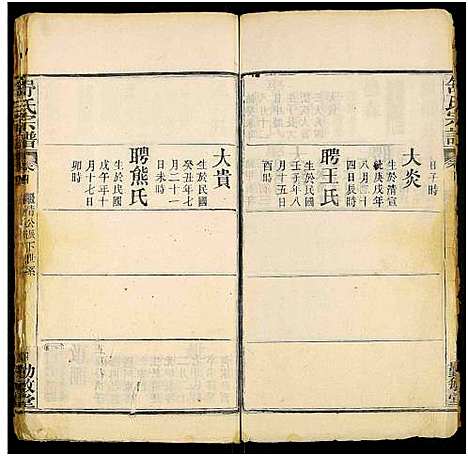 日子時
大炎
生於清宣
統庚戌年
八月二十
四日辰時
聘王氏
生於民國
壬子年八
月十五日
酉時
大貴
生於民國
癸丑年七
月二十一
日未時
聘熊氏
生於民國
戊午年十
月十七日
卯時
舒氏宗譜
敦堂